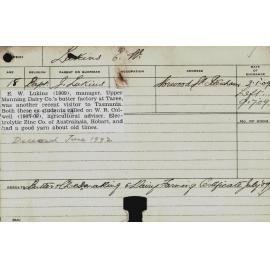 Lukins E. W.
AGE RELIGION PARENT OR GUARDIAN OCCUPATION ADDRESS DATE OF ENTRANCE
18 Bapt J. Lukins Norwood St
Left
E. W. Lukins (1909), manager, Upper
Manning Dairy Co.'s butter factory at Taree,
was another recent visitor to Tasmania.
Both these ex students called on W. R. Col-
well (1907-09), agricultural adviser, Elec-
trolytic Zinc Co. of Australasia, Hobart, and
had a good yarn about old times.
Deceased June 1972
Butter & Cheesemaking & Dairy Farming Certificate July 09